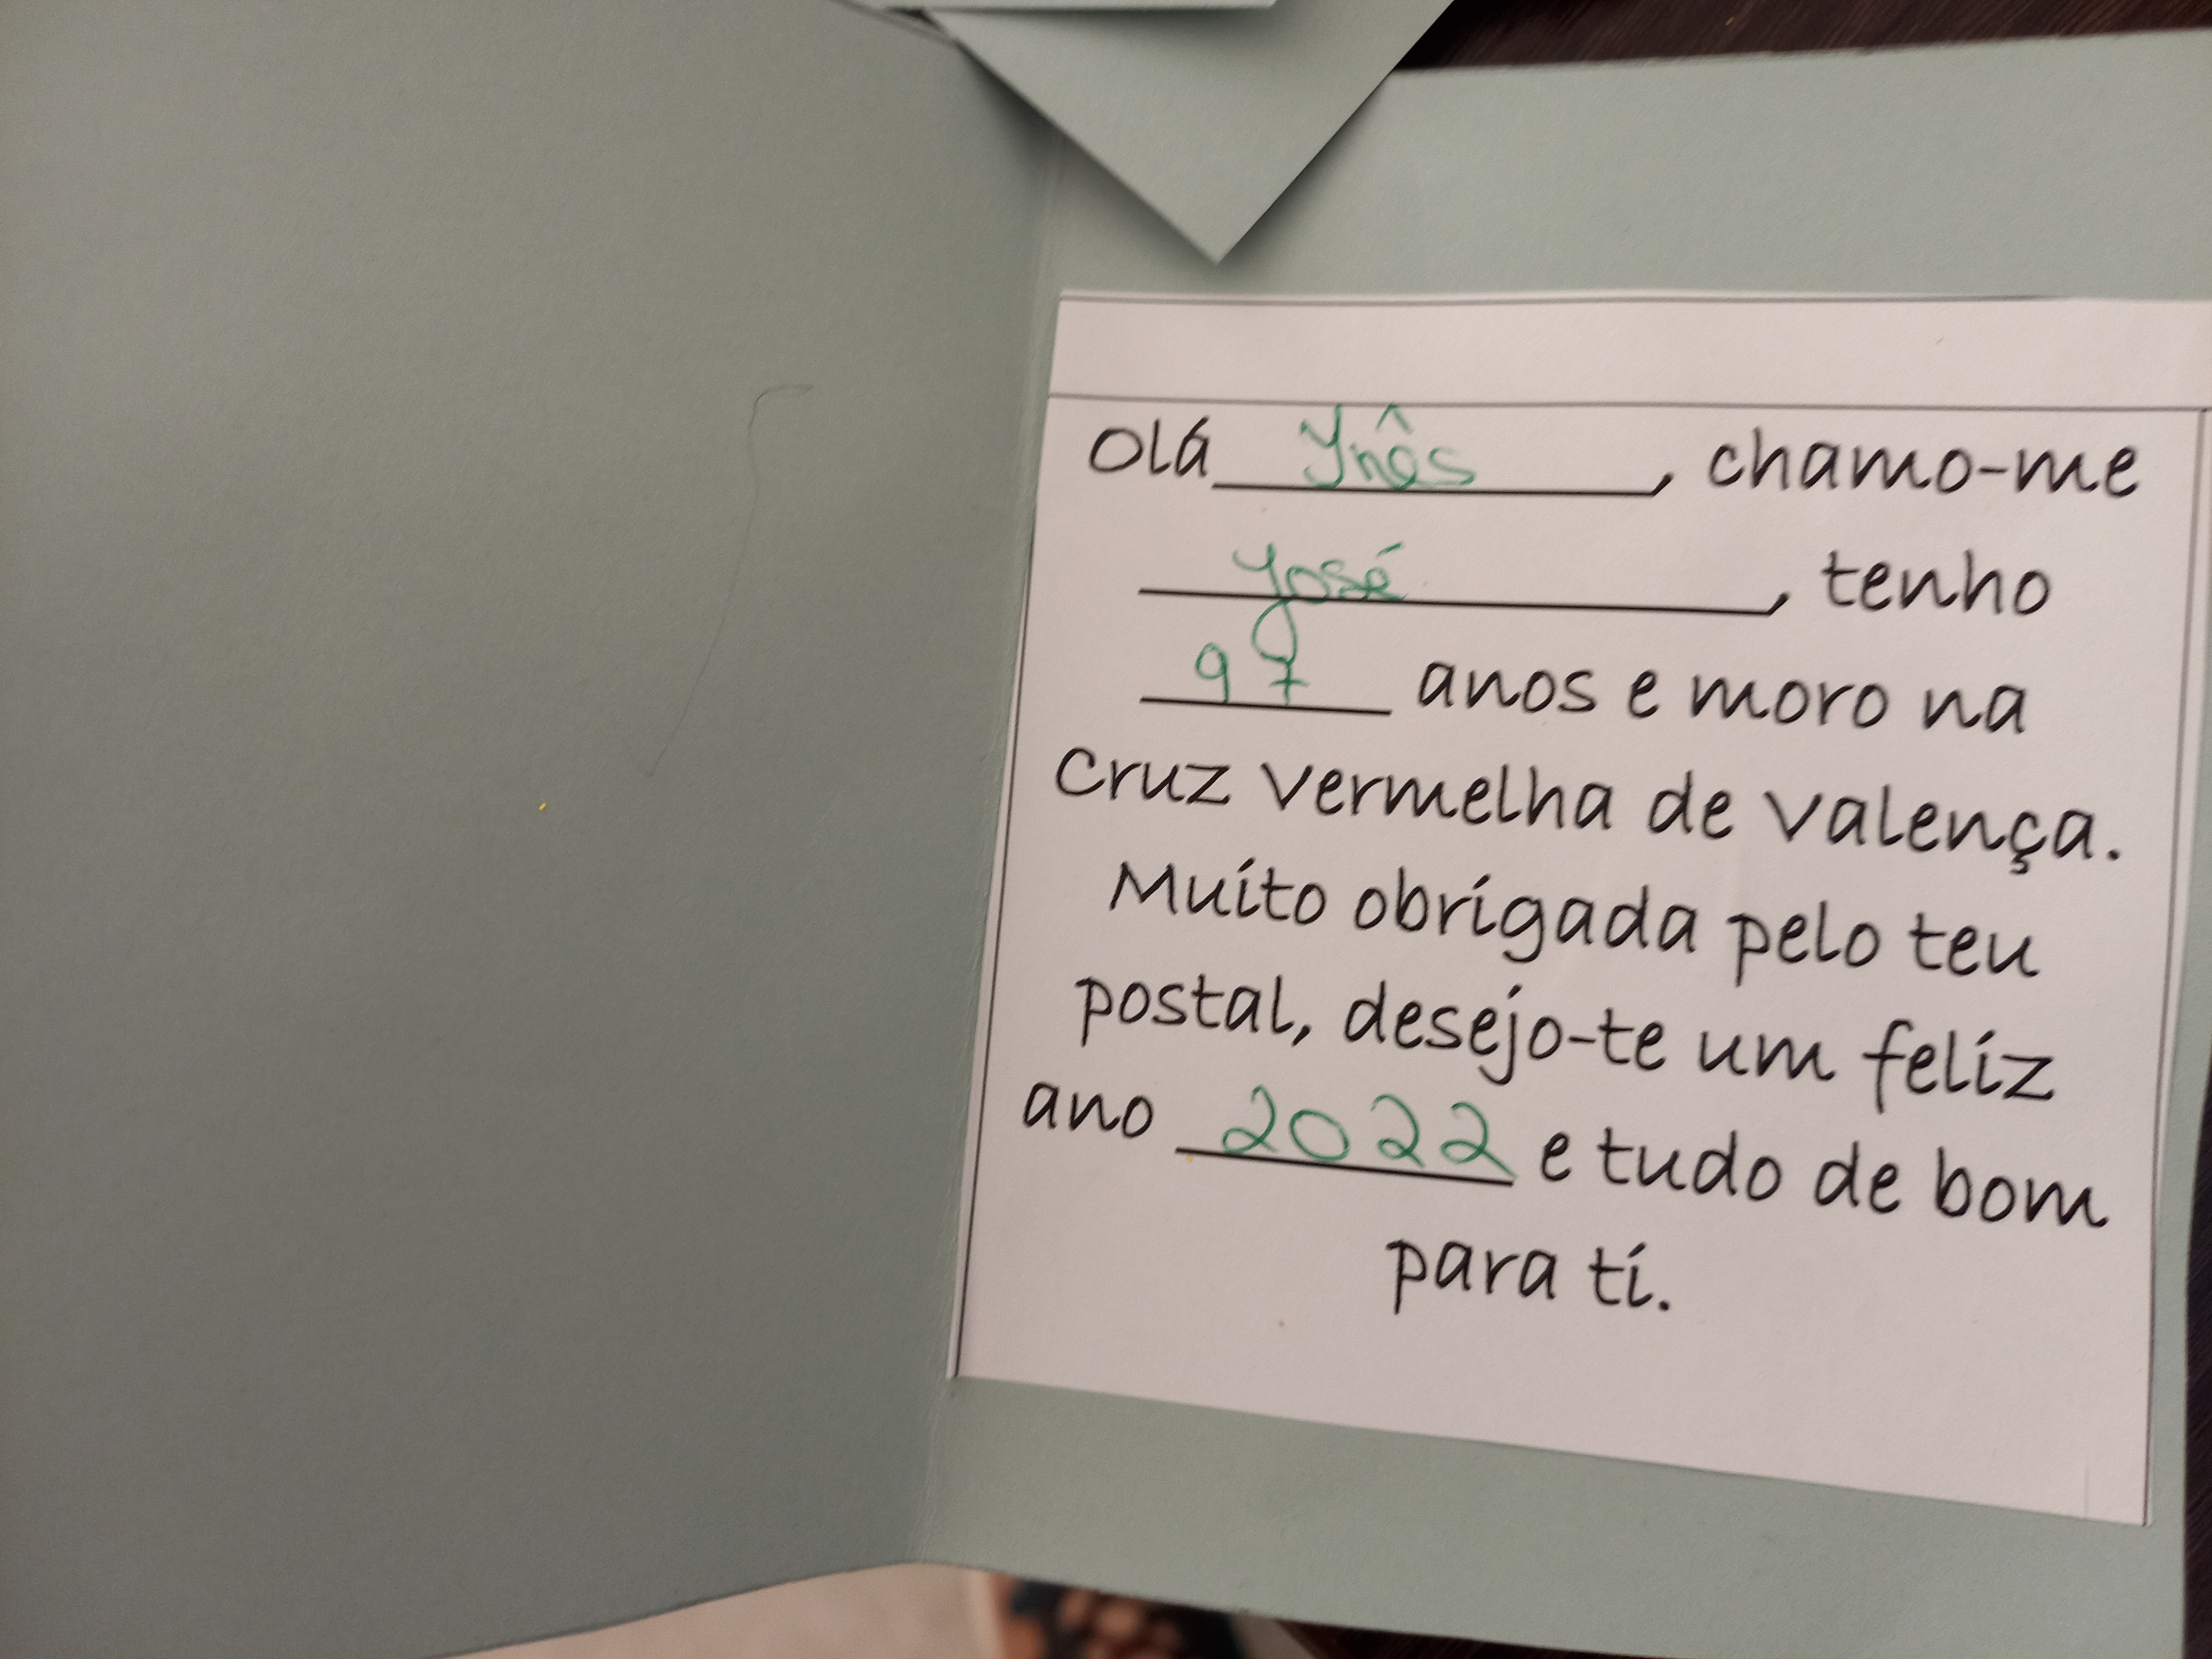 Olá Ynês, chamo-me
José, tenho
97 anos e moro na
Cruz Vermelha de Valença.
Muito obrigada pelo teu
postal, desejo-te um feliz
ano 2022 e tudo de bom
para ti.